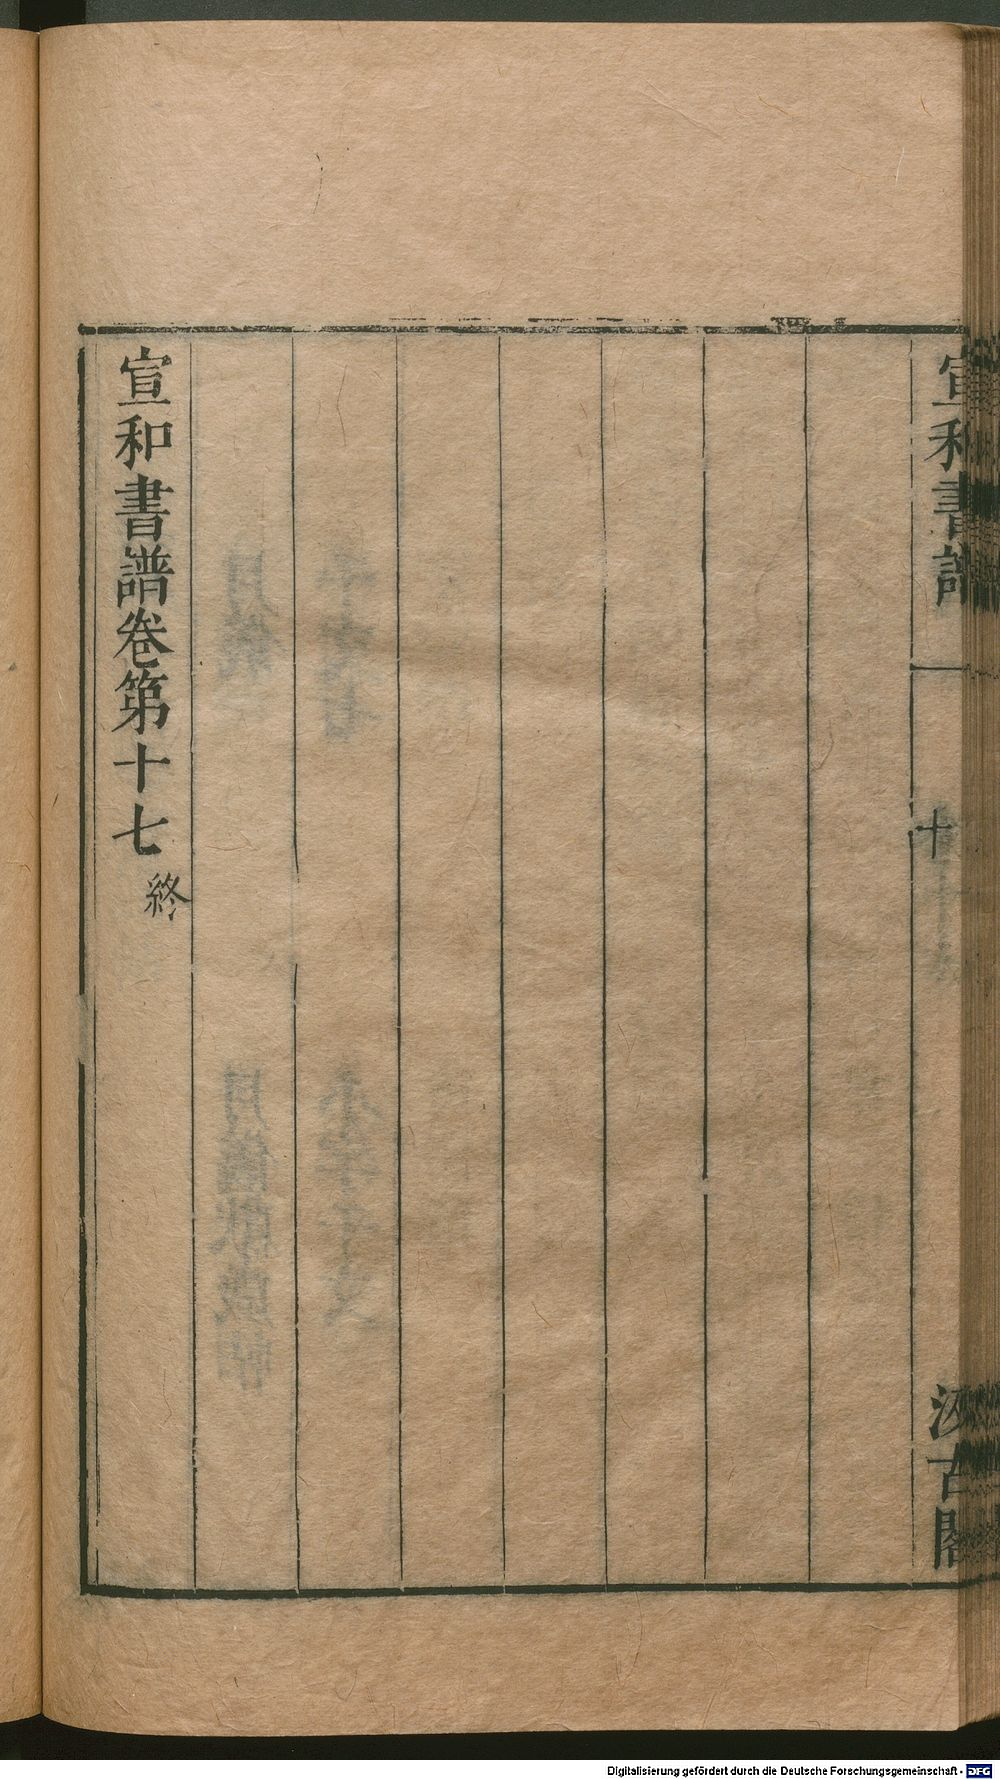 宣和書譜
十
汲古閣
宣和書譜卷第十七終
Digitalisierung gefördert durch die Deutsche Forschungsgemeinschaft - DFG